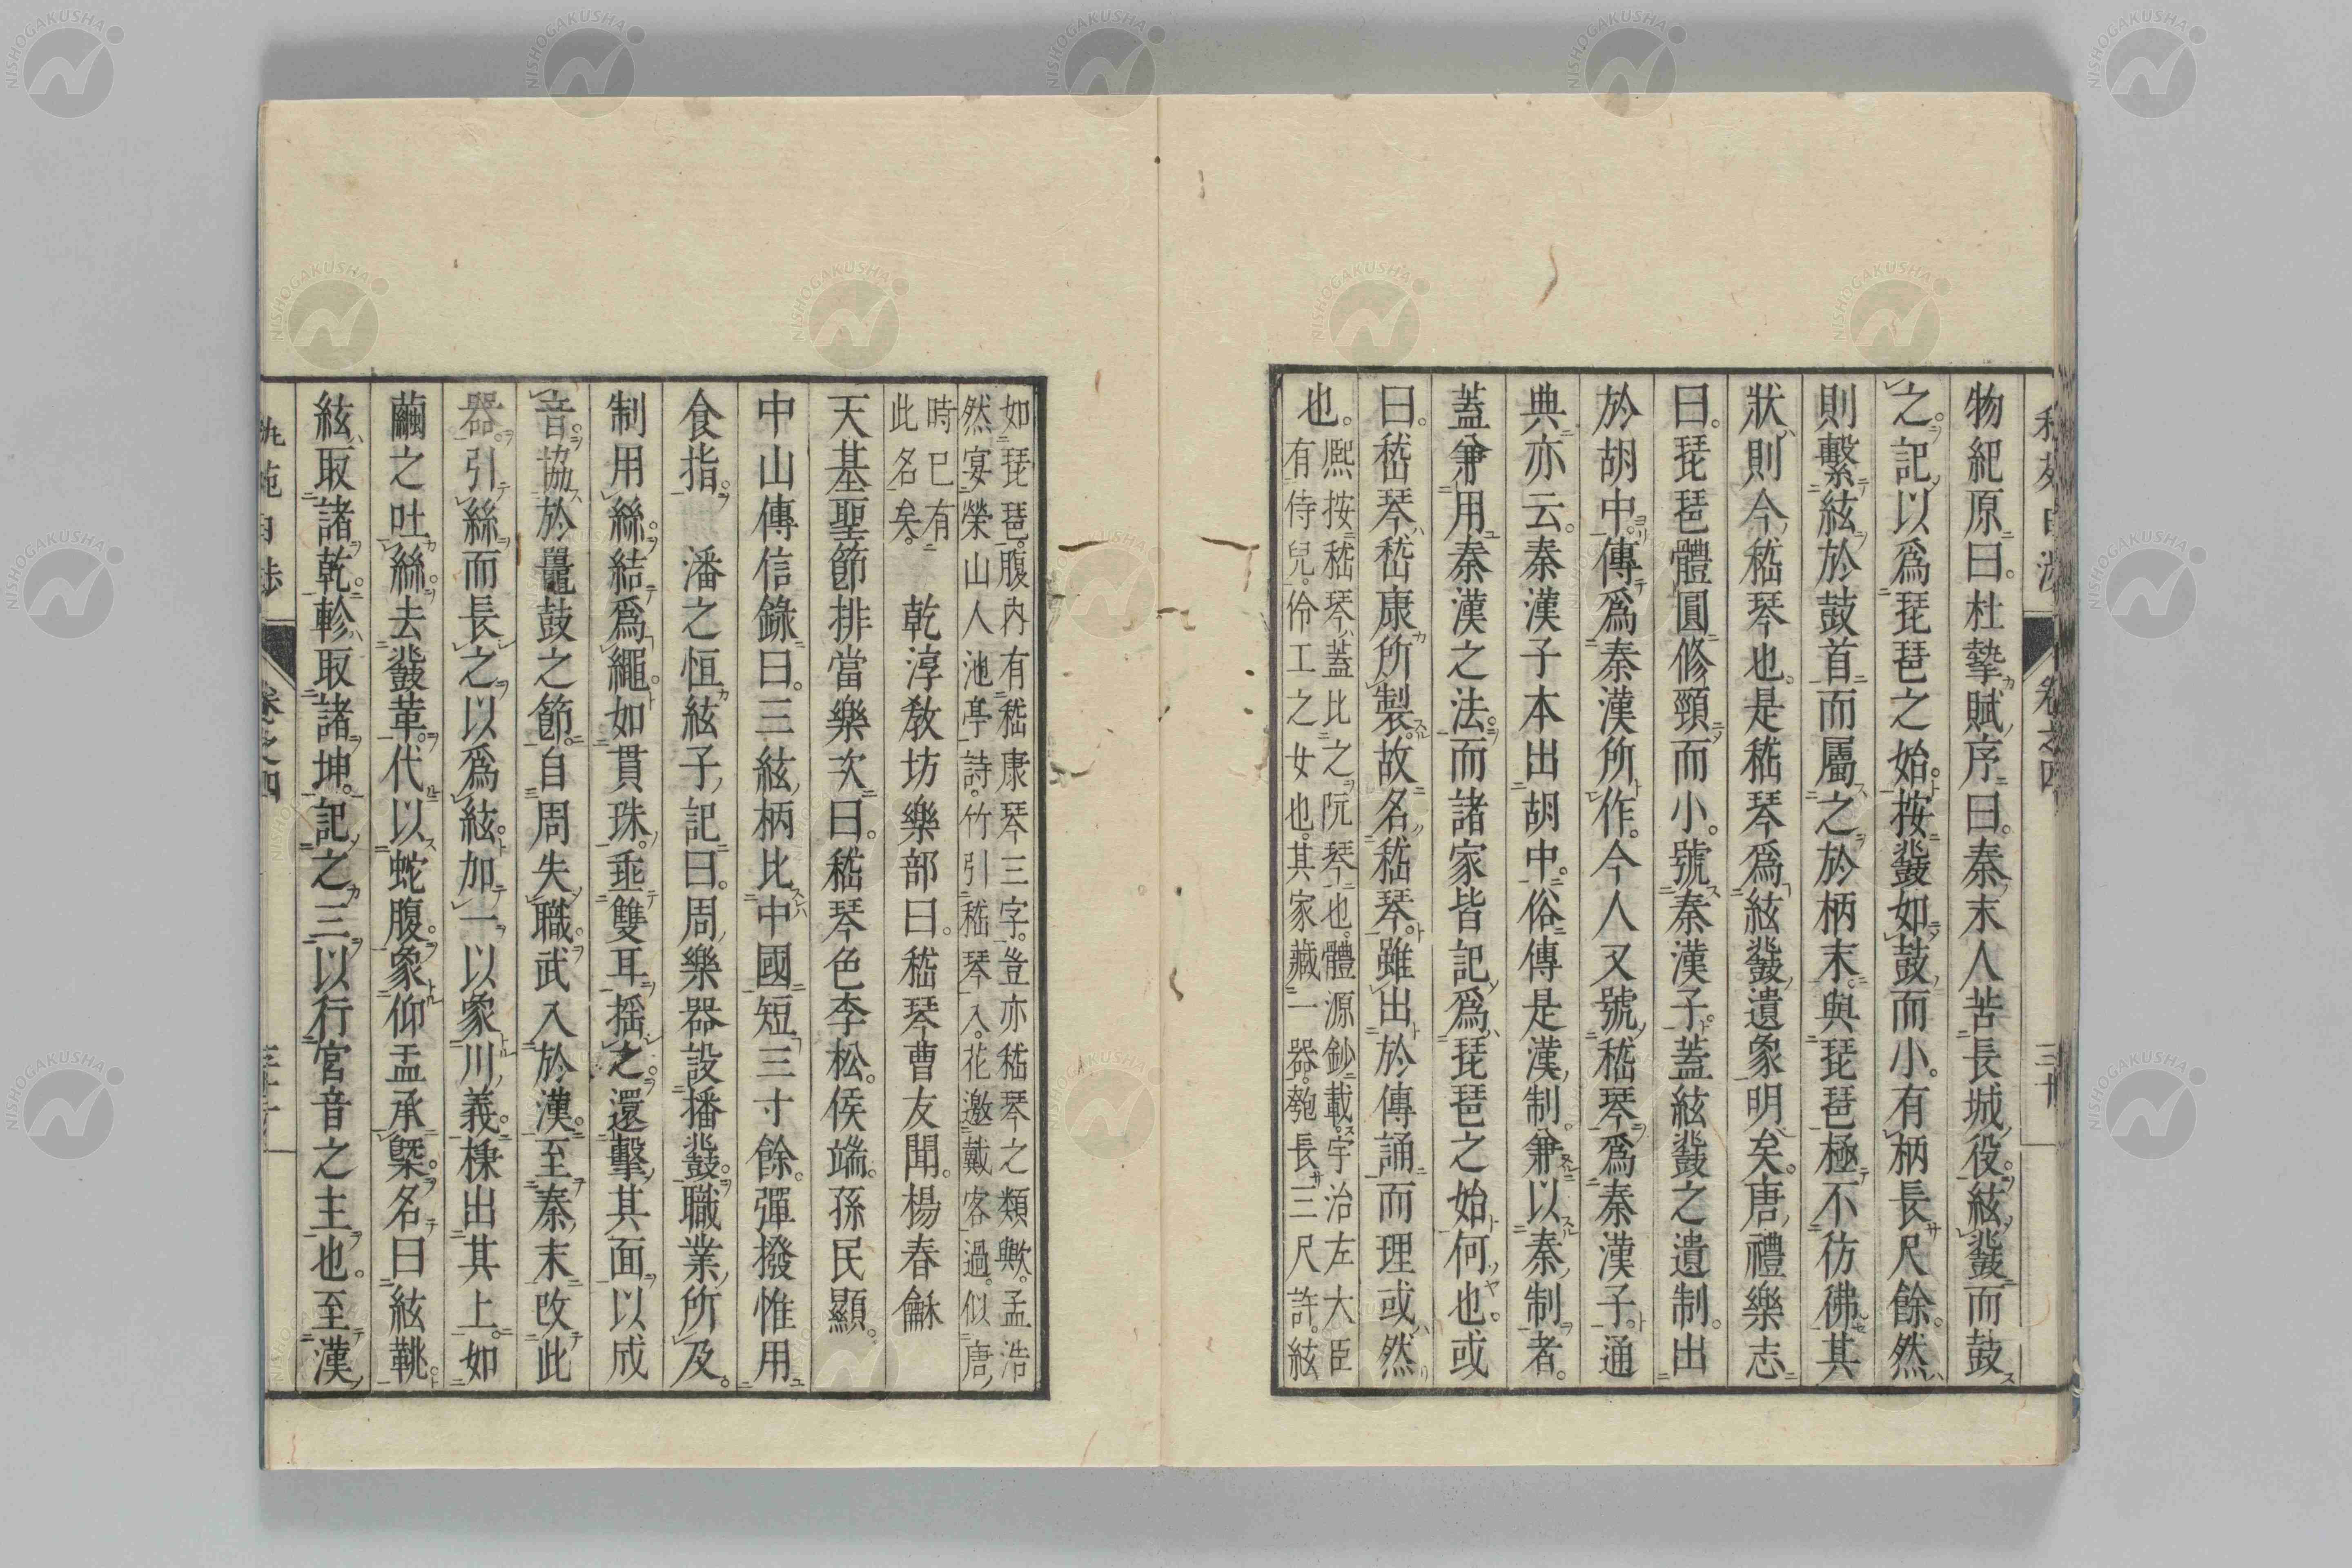 物紀原曰。杜摯賦序曰。秦末人苦長城役。絃鼗而鼓
之。記以爲琵琶之始。按鼗如鼓而小。有柄長尺餘。然
則繫絃於鼓首而屬之於柄末。與琵琶極不彷彿。其
狀則今嵆琴也。是嵆琴爲絃鼗遺象明矣。唐禮樂志
曰。琵琶體圓修頸而小。號秦漢子。蓋絃鼗之遺制。出
於胡中。傳爲秦漢所作。今人又號嵆琴爲秦漢子。通
典亦云。秦漢子本出胡中。俗傳是漢制。兼以秦制者。
蓋兼用秦漢之法。而諸家皆記爲琵琶之始何也。或
曰。嵆琴嵆康所製。故名嵆琴。雖出於傳誦而理或然
也。熈按嵆琴蓋比之阮琴也。體源鈔載。宇治左大臣
有侍兒。伶工之女也。其家藏一器。匏長三尺許。絃
如琵琶。腹内有嵆康琴三字。豈亦嵆琴之類歟。孟浩
然宴榮山人池亭詩。竹引嵆琴入。花邀戴客過。似唐
時已有
此名矣。
乾淳敎坊樂部曰。嵆琴曹友聞。楊春龢
天基聖節排當樂次曰。嵆琴色李松。侯端。孫民顯。
中山傳信錄曰。三絃柄比中國短三寸餘。彈撥惟用
食指。 潘之恒絃子記曰。周樂器設播鼗。職業所及。
制用絲。結爲繩。如貫珠。埀雙耳。搖之。還擊其面以成
音。協於鼉鼓之節。自周失職。武入於漢。至秦末改此
器。引絲而長之以爲絃。加一以象川義。棟出其上。如
繭之吐絲。去鼗革。代以蛇腹。象仰盂承槩。名曰絃鞉。
絃取諸乾。軫取諸坤。記之三以行宮音之主也。至漢
卷之四